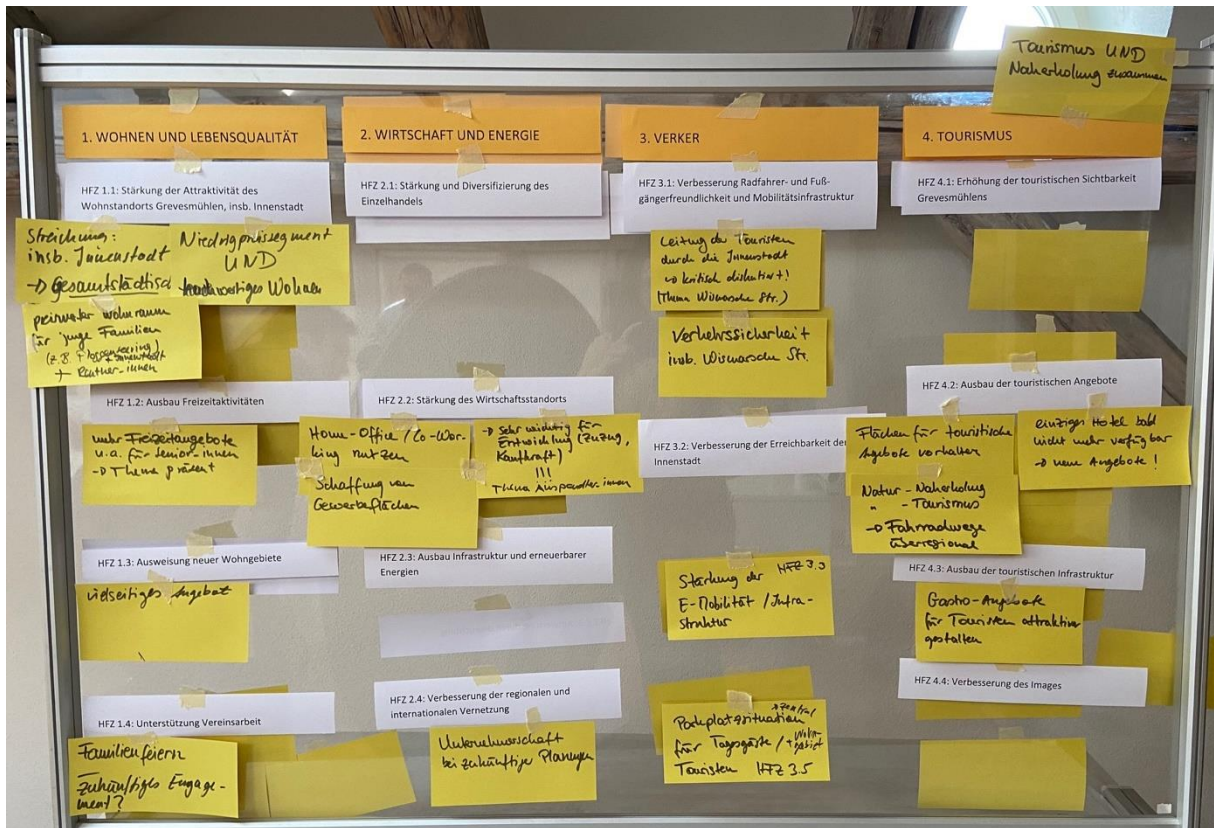 Tourismus UND
Naherholung zusammen
1. WOHNEN UND LEBENSQUALITÄT
HFZ 1.1: Stärkung der Attraktivität des
Wohnstandorts Grevesmühlen, insb. Innenstadt
Streichung:
insb. Innenstadt
→ Gesamtstädtisch
Niedrigpreissegment
UND
hochwertiges Wohnen
preiswerter Wohnraum
für junge Familien
(z.B.
+ Innenstadt
+ Rentner-innen
HFZ 1.2: Ausbau Freizeitaktivitäten
mehr Freizeitangebote
u.a. für Senior-innen
→ Thema präsent
HFZ 1.3: Ausweisung neuer Wohngebiete
vielseitiges Angebot
HFZ 1.4: Unterstützung Vereinsarbeit
Familienfeiern
zukünftiges Engage-
ment?
2. WIRTSCHAFT UND ENERGIE
HFZ 2.1: Stärkung und Diversifizierung des
Einzelhandels
HFZ 2.2: Stärkung des Wirtschaftsstandorts
Home-Office / Co-Wor-
king nutzen
Schaffung von
Gewerbeflächen
→ Sehr wichtig für
Entwicklung (Zuzug,
Kaufkraft)
!!!
Thema Auspendler-innen
HFZ 2.3: Ausbau Infrastruktur und erneuerbarer
Energien
HFZ 2.4: Verbesserung der regionalen und
internationalen Vernetzung
Unternehmerschaft
bei zukünftiger Planungen
3. VERKER
HFZ 3.1: Verbesserung Radfahrer- und Fuß-
gängerfreundlichkeit und Mobilitätsinfrastruktur
Leitung der Touristen
durch die Innenstadt
→ kritisch diskutiert!
(Thema Wismarsche Str.)
Verkehrssicherheit
insb. Wismarsche Str.
HFZ 3.2: Verbesserung der Erreichbarkeit der
Innenstadt
Stärkung der HFZ 3.3
E-Mobilität / Infra-
struktur
Parkplatzsituation + zentral
für Tagsgäste / + Wohn-
gebiet
Touristen HFZ 3.5
4. TOURISMUS
HFZ 4.1: Erhöhung der touristischen Sichtbarkeit
Grevesmühlens
HFZ 4.2: Ausbau der touristischen Angebote
Flächen für touristische
Agebote vorhalten
einziges Hotel bald
nicht mehr verfügbar
→ neue Angebote!
Natur - Naherholung
" - Tourismus
→ Fahrradwege
überregional
HFZ 4.3: Ausbau der touristischen Infrastruktur
Gastro-Angebote
für Touristen attraktiver
gestalten
HFZ 4.4: Verbesserung des Images